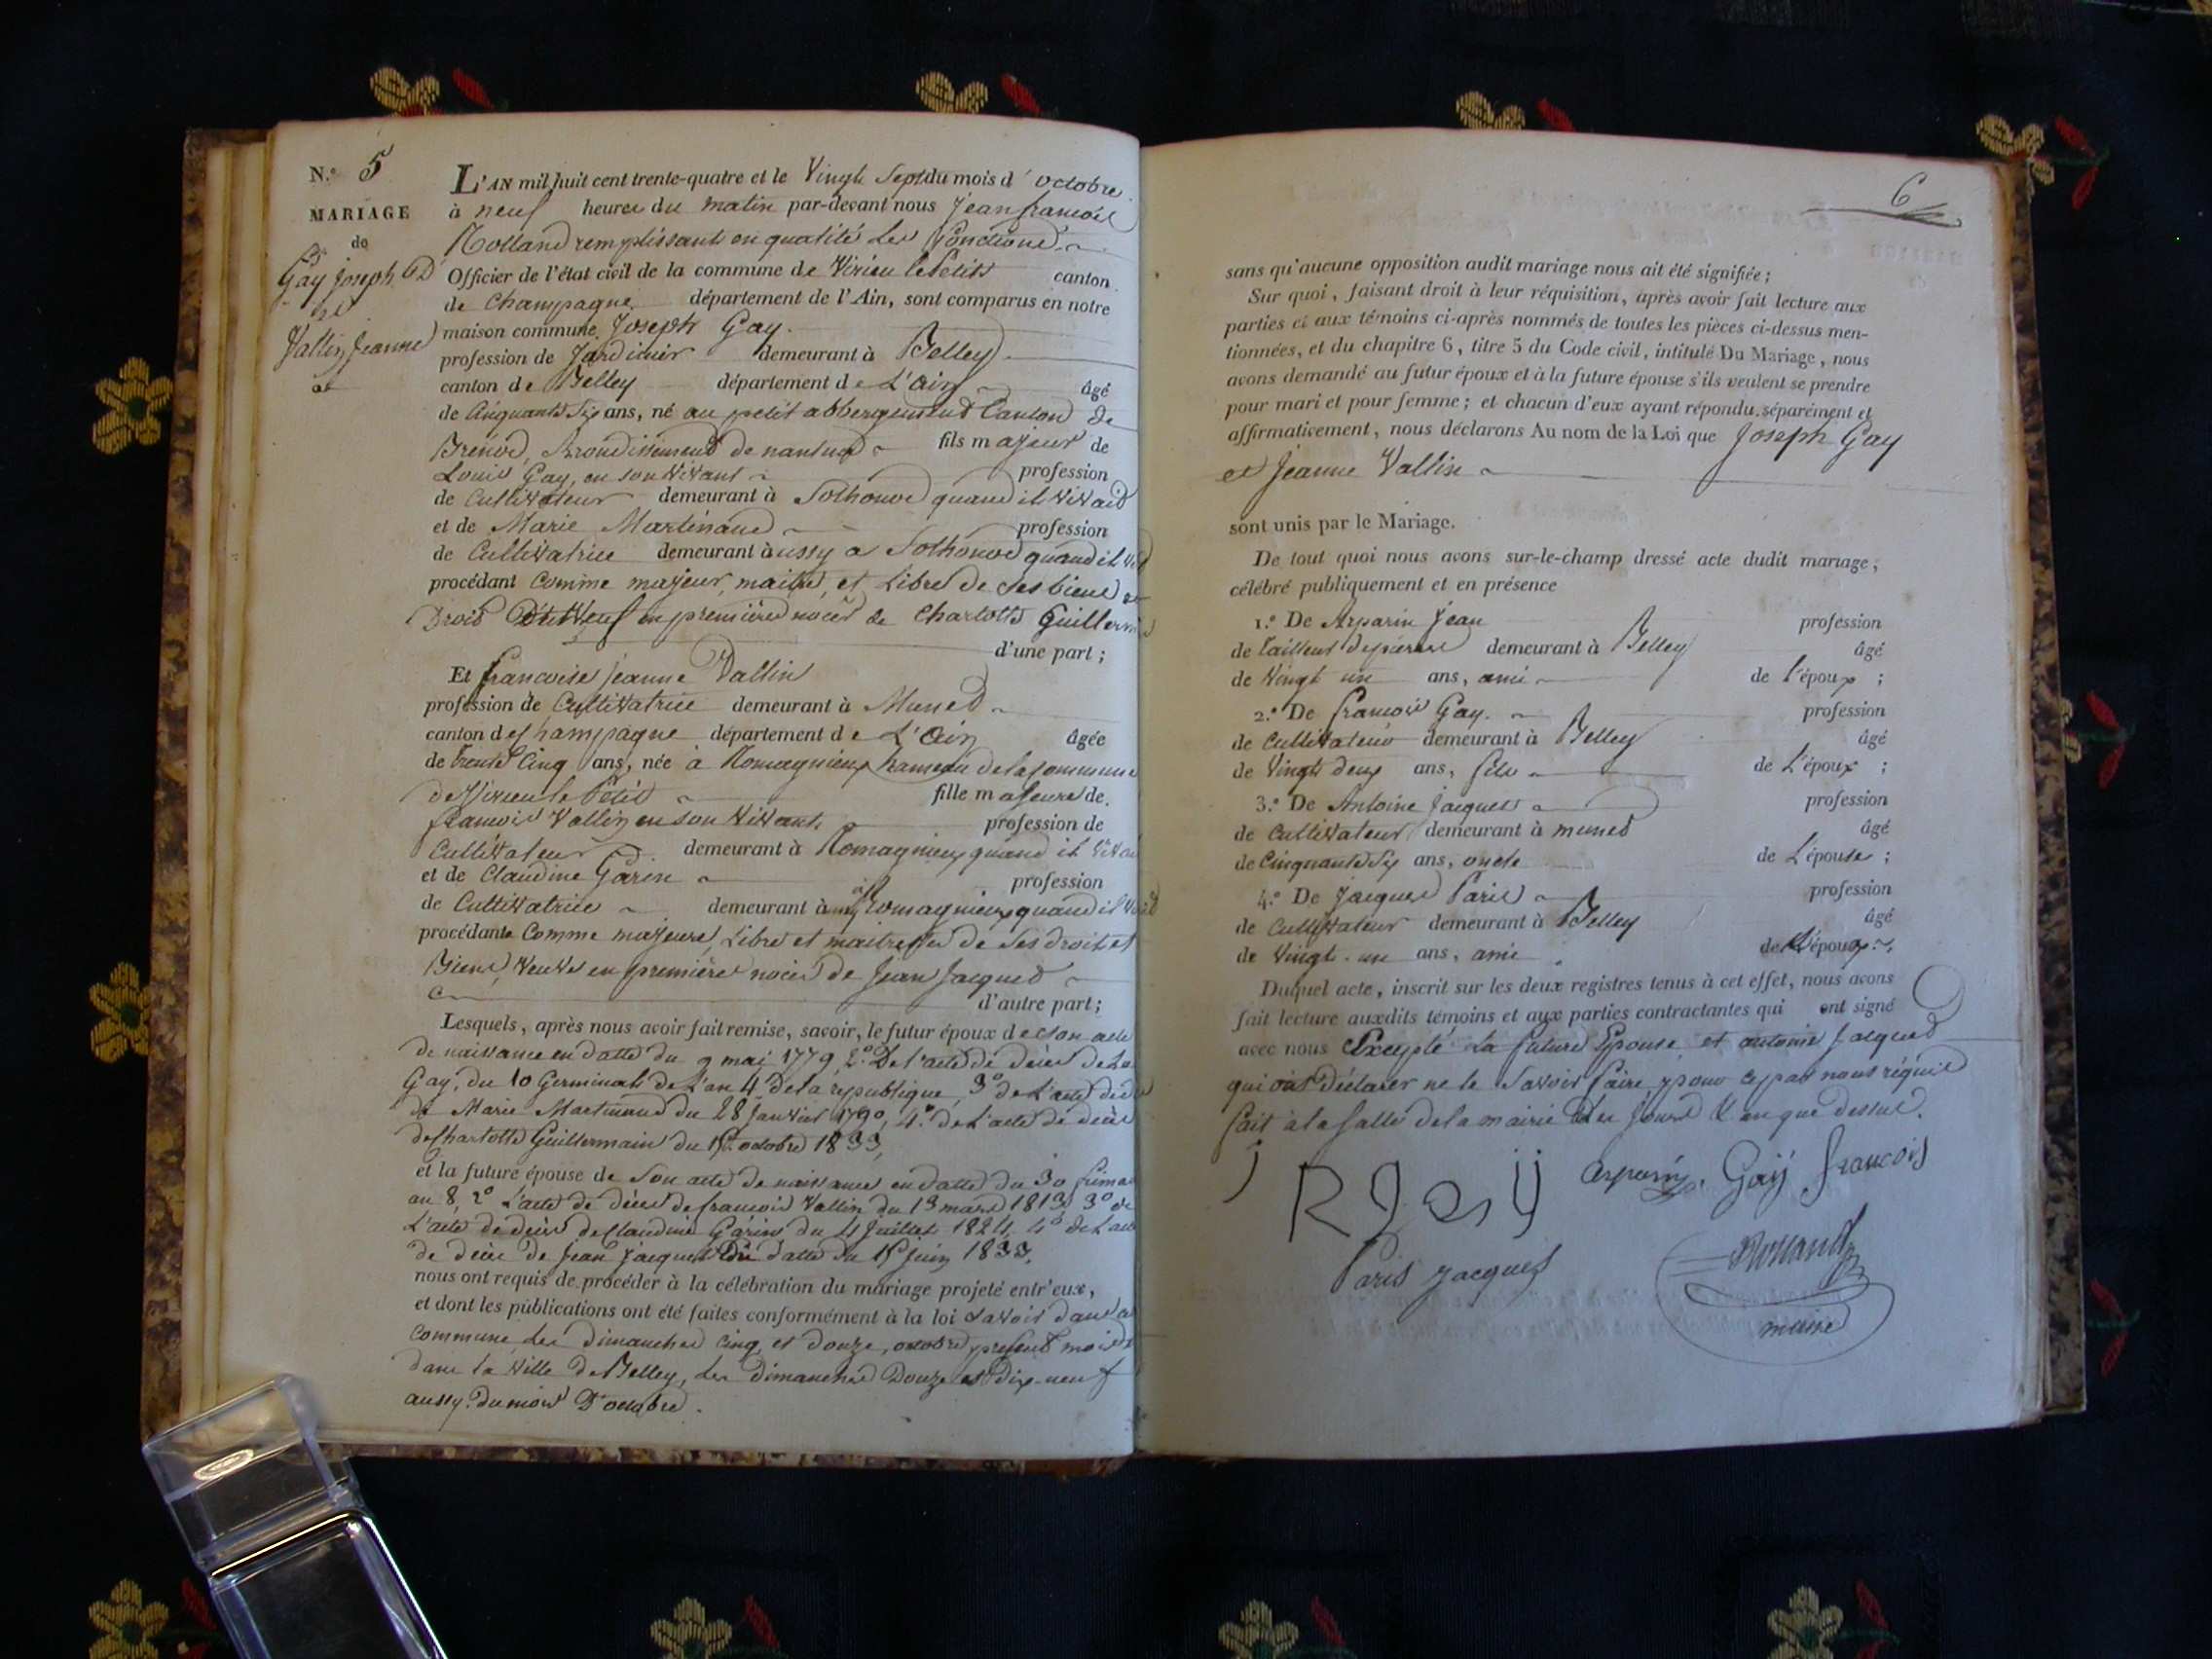 N.o 5
MARIAGE
de
Gay Joseph
et
Vallin Jeanne
L'AN mil huit cent trente-quatre et le Vingt Sept du mois d'octobre
à neuf heures du matin par-devant nous Jean francois
Rolland remplissant en qualité les fonctions
Officier de l'état civil de la commune de Virieu le Petit canton
de Champagne département de l'Ain, sont comparus en notre
maison commune Joseph Gay.
profession de Jardinier demeurant à Belley
canton de Belley département de L'ain âgé
de Cinquante Six ans, né au petit abbergement Canton de
Brénod, Arrondissement de nantua fils majeur de
Louis Gay, en son Vivant profession
de Cultivateur demeurant à Sothonod quand il Vivait
et de Marie Martinand profession
de Cultivatrice demeurant àussy a Sothonod quand il
procédant Comme majeur, maitre, et Libre de ses biens et
Droits Veuf en premières noces de Charlotte Guillermin
d'une part ;
Et francoise jeanne Vallin
profession de Cultivatrice demeurant à Munet
canton de Champagne département de L'Ain âgée
de trente Cinq ans, née à Romagnieux hameau de la Commune
de Virieu le Petit fille majeure de
francois Vallin en son Vivant profession de
Cultivateur demeurant à Romagnieux quand il Vivait
et de Claudine Garin profession
de Cultivatrice demeurant à Romagnieux quand il
procédante Comme majeure, Libre et maitresse de Ses droits et
Biens, Veuve en premières noces de Jean Jacquet
d'autre part ;
Lesquels, après nous avoir fait remise, savoir, le futur époux de son acte
de naissance en datte du 9 mai 1779, 2.o De l'acte de décès de
Gay, du 10 Germinal de L'an 4 de la republique, 3o de L'acte de
de Marie Martinand du 28 Janvier 1790, 4.o de L'acte de décès
de Charlotte Guillermain du 15 octobre 1833,
et la future épouse de Son acte de naissance en datte du 30 frimaire
an 8, 2o L'acte de décès de francois Vallin du 13 mars 1813 3o de
L'acte de décès de Claudine Garin du 4 Juillet 1824, 4o de L'acte
de décès de Jean Jacquet en datte du 15 Juin 1833,
nous ont requis de procéder à la célébration du mariage projeté entr'eux,
et dont les publications ont été faites conformément à la loi Savoir dans
Commune, les dimanches cinq et douze, octobre present mois
dans la ville de Belley, les dimanches Douze et Dix-neuf
aussy du mois D'octobre.
6
sans qu'aucune opposition audit mariage nous ait été signifiée ;
Sur quoi, faisant droit à leur réquisition, après avoir fait lecture aux
parties et aux témoins ci-après nommés de toutes les pièces ci-dessus men-
tionnées, et du chapitre 6, titre 5 du Code civil, intitulé Du Mariage, nous
avons demandé au futur époux et à la future épouse s'ils veulent se prendre
pour mari et pour femme ; et chacun d'eux ayant répondu séparément et
affirmativement, nous déclarons Au nom de la Loi que Joseph Gay
et Jeanne Vallin
sont unis par le Mariage.
De tout quoi nous avons sur-le-champ dressé acte dudit mariage,
célébré publiquement et en présence
1.o De Arparin Jean profession
de tailleur de pierres demeurant à Belley âgé
de Vingt un ans, ami de l'époux ;
2.o De francois Gay. profession
de Cultivateur demeurant à Belley âgé
de Vingt deux ans, fils de L'époux ;
3.o De Antoine Jacquet profession
de Cultivateur demeurant à munet âgé
de Cinquante Six ans, oncle de L'épouse ;
4.o De Jacques Paris profession
de Cultivateur demeurant à Belley âgé
de Vingt-un ans, ami de L'époux.
Duquel acte, inscrit sur les deux registres tenus à cet effet, nous avons
fait lecture auxdits témoins et aux parties contractantes qui ont signé
avec nous Excepté La future Epouse et antoine Jacquet
qui ont Déclarer ne le Savoir faire, pour ce par nous réquis
fait à la salle de la mairie Les Jours & an que dessus.
J R gay arparin Gay francois
Paris jacques
Rolland
maire